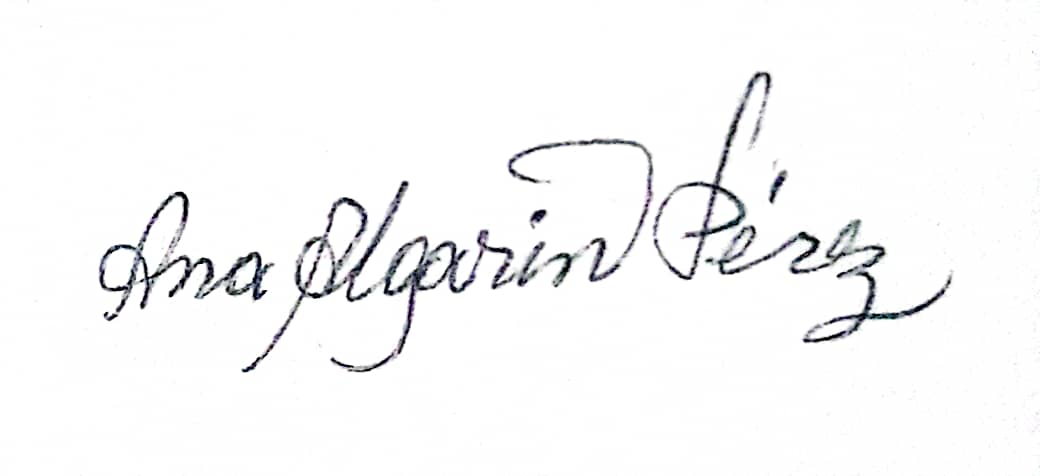 Ana Algarin Pérez